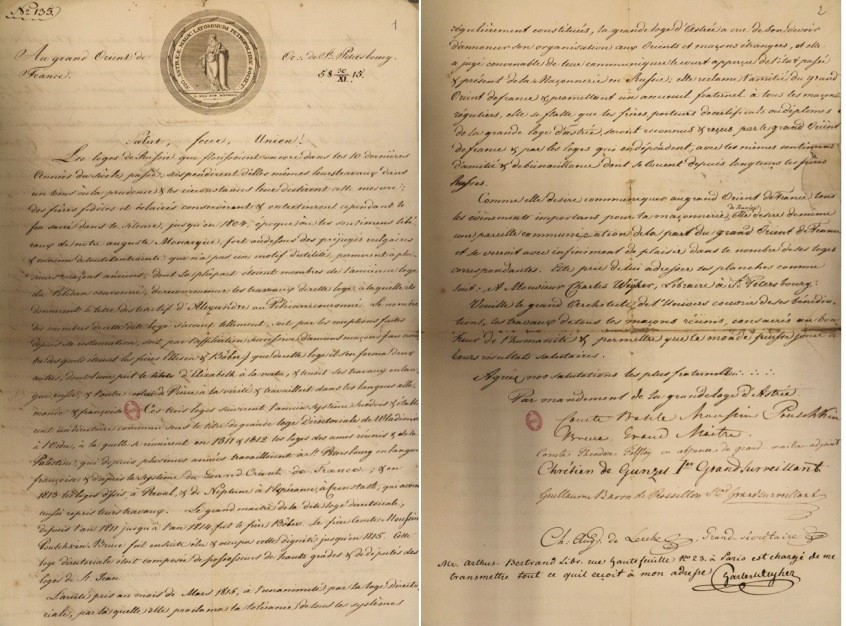 No 135.
1
Au grand Orient de
France.
Or. de St. Petersbourg.
58 30/XI 15.
Salut, force, Union!
Les loges de Russie que florissoient encore dans les 10 dernières
Années du siècle passé, suspendirent d'elles mêmes leurs travaux dans
un tems où la prudence & les circonstances leur dictèrent cette mesure;
des frères fidèles et éclairés conservèrent & entretinrent cependant le
feu sacré dans le silence, jusqu'en 1804, époque où les sentimens libé-
raux de notre auguste Monarque, fort au dessus des préjugés vulgaires
qui n'a pas un motif d'utilité, permirent à plu-
sieurs maçons anciens, dont la plupart étoient membres de l'ancienne loge
du Pélican couronné, de recommencer les travaux de cette loge, à laquelle ils
donnèrent le titre distinctif d'Alexandre au Pélican couronné. Le nombre
des membres de cette dite loge s'accrut tellement, soit par les réceptions faites
depuis sa restauration, soit par l'affiliation successive d'anciens maçons
que de cette loge il s'en forma deux
autres, dont l'une prit le titre d'Elisabeth à la vertu, & tenoit ses travaux en lan-
gue russe, & l'autre celui de Pierre à la vérité & travailloit dans les langues alle-
mande & françoise. Ces trois loges suivirent l'ancien système suédois & établi-
rent un directoire commun sous le titre de grande loge Directoriale de Wladimir
à l'ordre, à laquelle se réunirent en 1811 & 1812 les loges des amis réunis & de la
Palestine, qui depuis plusieurs années travailloient à St. Petersbourg en langue
françoise & d'après le système du Grand Orient de France; & en
1813 les loges d'Isis, à Reval, & de Neptune à l'Espérance, à Cronstadt, qui avoient
aussi repris leurs travaux. Le grand maître de la dite loge directoriale,
depuis l'an 1811 jusqu'à l'an 1814 fut le frère Böber. Le frère comte Moussin
Pouschkin Bruce fut ensuite élu & occupa cette dignité jusqu'en 1815. Cette
loge directoriale étoit composée de possesseurs de hauts grades & de députés des
loges de St. Jean.
L'arrêté pris au mois de Mars 1815, à l'unanimité par la loge directo-
riale, par laquelle elle proclama la tolérance de tous les systèmes
2
régulièrement constitués, la grande loge d'Astrée a cru de son devoir
d'annoncer son organisation aux Orients et maçons étrangers, et elle
a jugé convenable de leur communiquer le court apperçu de l'état passé
& présent de la Maçonnerie en Russie; elle reclame l'amitié du grand
Orient de France & promettant un accueil fraternel à tous les maçons
réguliers, elle se flatte que les frères, porteurs de certificats ou diplomes
de la grande loge d'Astrée, seront reconnus & reçus par le grand Orient
de France & par les loges qui en dépendent, avec les mêmes sentimens
d'amitié & de bienveillance dont se louent depuis longtems les frères
Russes.
Comme elle désire communiquer au grand Orient de France tous
les évènemens important pour la maçonnerie, elle désire de même
une pareille communication de la part du grand Orient de France
et se verroit avec infiniment de plaisir dans le nombre de ses loges
correspondantes. Elle prie de lui adresser ses planches comme
suit: A Monsieur Charles Weyher, Libraire à St. Petersbourg.
Veuille le grand Architecte de l'Univers couvrir de ses bénédic-
tions, les travaux de tous les maçons réunis, consacrés au bon-
heur de l'humanité & permettre que le monde puisse jouir de
leurs résultats salutaires.
Agréez nos salutations les plus fraternelles.
Par mandement de la grande loge d'Astrée
Comte Basile Moussin Pouschkin
Bruce, Grand Maître.
Comte Theodor Tolstoy en absence du grand maître adjoint
Chrétien de Gunzel 1er Grand surveillant
Guillaume Baron de Rossillon 2nd Grand surveillant
Ch. Aug. de Lerche, Grand Secrétaire
Mr. Arthur Bertrand Libr. rue Hautefeuille No 23. à Paris est chargé de me
transmettre tout ce qu'il reçoit à mon adresse Charles Weyher